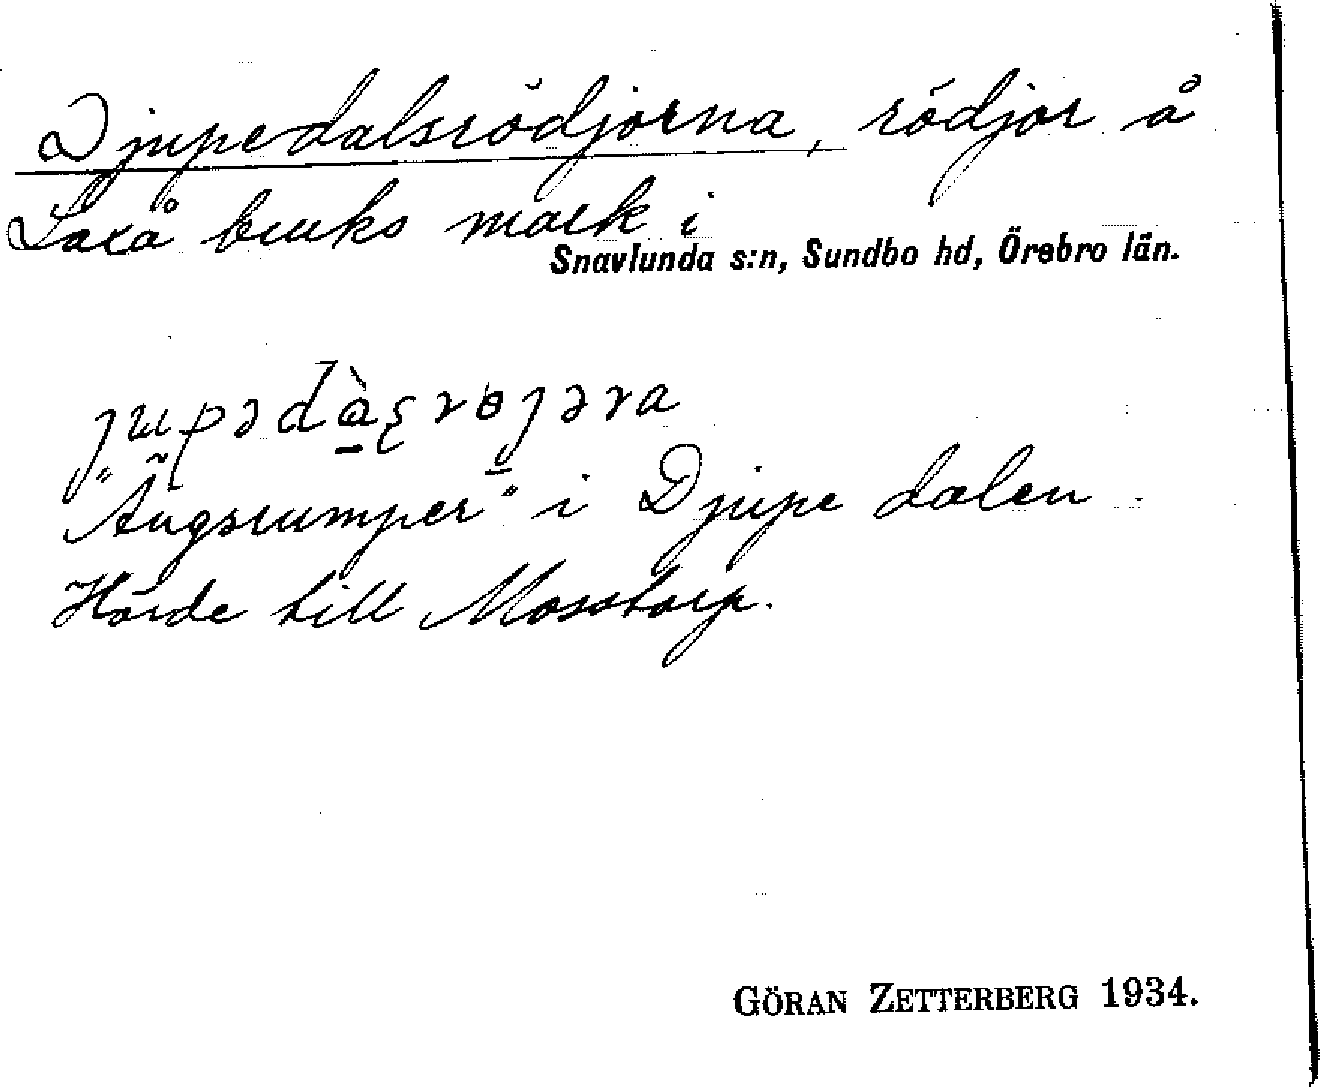 Djupedalsrödjorna, rödjor å
Laxå bruks mark i
Snavlunda s:n, Sundbo hd, Örebro län.
"Ängsrumper" i Djupe dalen.
Hörde till Mosstorp.
GÖRAN ZETTERBERG 1934.